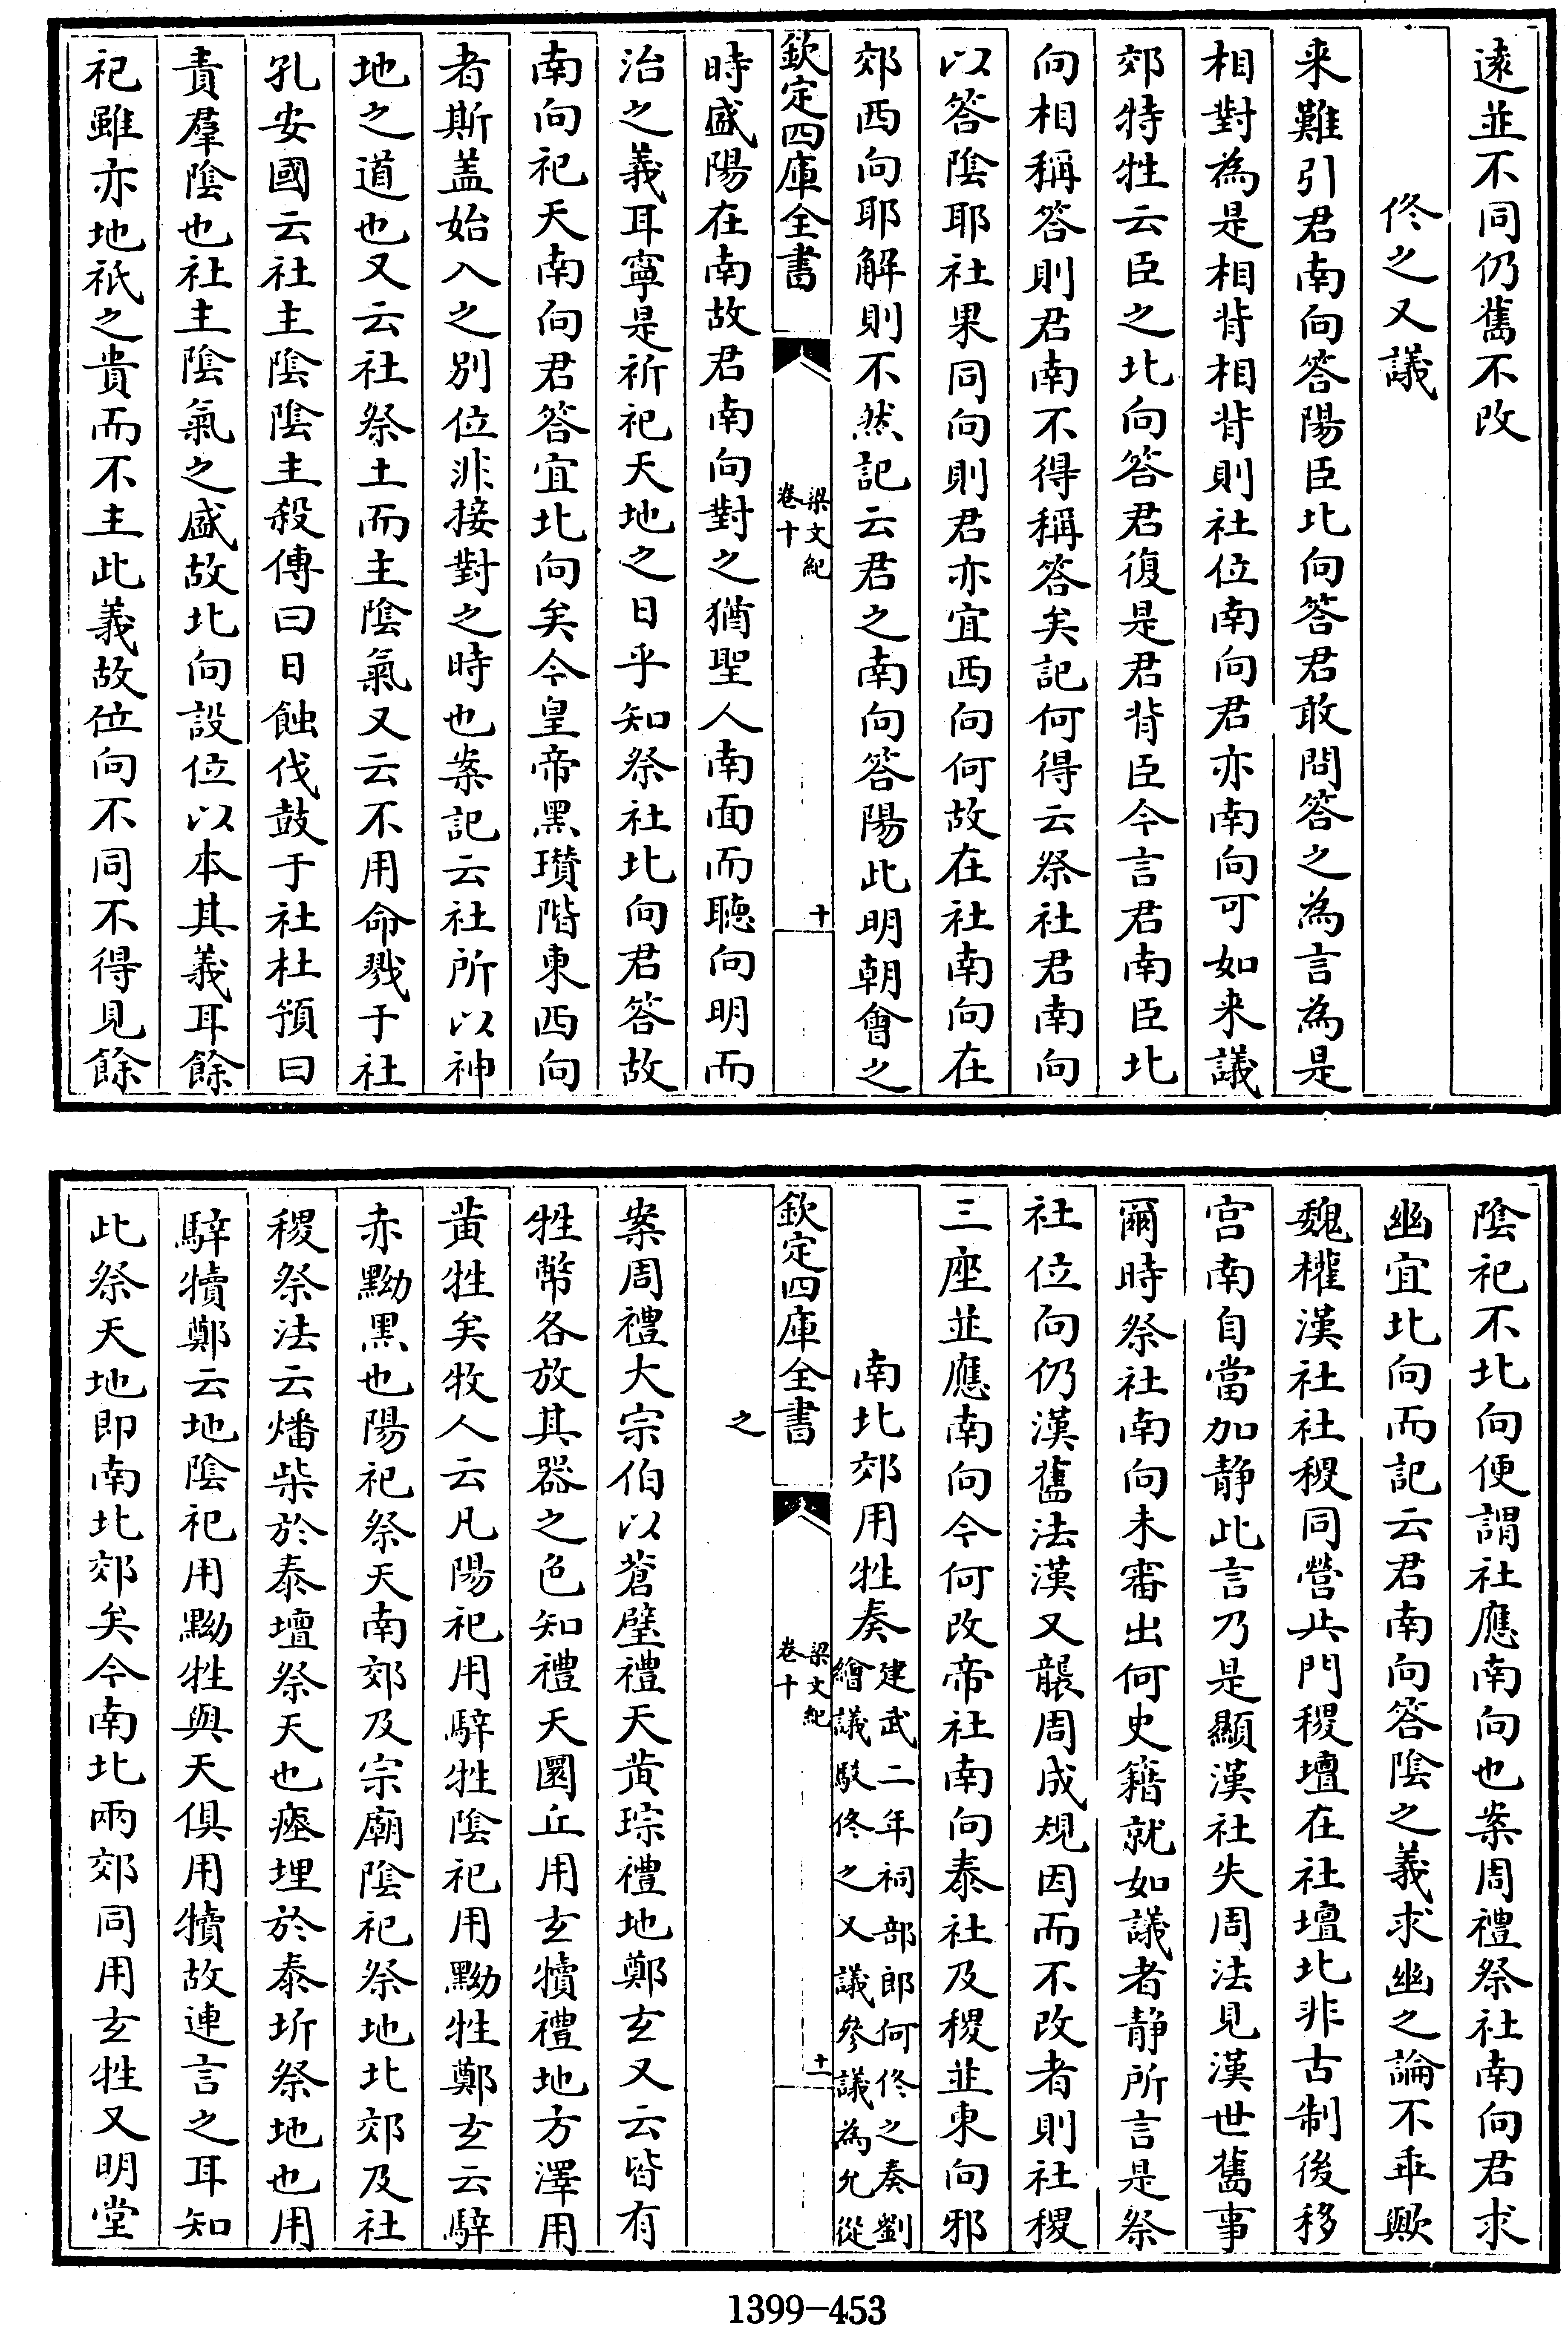 逺並不同仍舊不改
佟之又議
来難引君南向答陽臣北向答君敢問答之為言為是
相對為是相背相背則社位南向君亦南向可如来議
郊特牲云臣之北向答君復是君背臣今言君南臣北
向相稱答則君南不得稱答矣記何得云祭社君南向
以答陰耶社果同向則君亦宜西向何故在社南向在
郊西向耶解則不然記云君之南向答陽此明朝會之
欽定四庫全書
梁文紀
卷十
十
時盛陽在南故君南向對之猶聖人南面而聽向明而
治之義耳寧是祈祀天地之日乎知祭社北向君答故
南向祀天南向君答宜北向矣今皇帝黑瓚階東西向
者斯盖始入之別位非接對之時也案記云社所以神
地之道也又云社祭土而主陰氣又云不用命戮于社
孔安國云社主陰陰主殺傳曰日蝕伐鼓于社杜預曰
責羣陰也社主陰氣之盛故北向設位以本其義耳餘
祀雖亦地祇之貴而不主此義故位向不同不得見餘
陰祀不北向便謂社應南向也案周禮祭社南向君求
幽宜北向而記云君南向答陰之義求幽之論不乖歟
魏權漢社社稷同營共門稷壇在社壇北非古制後移
宫南自當加静此言乃是顯漢社失周法見漢世舊事
爾時祭社南向未審出何史籍就如議者静所言是祭
社位向仍漢舊法漢又襲周成規因而不改者則社稷
三座並應南向今何改帝社南向泰社及稷並東向邪
南北郊用牲奏
建武二年祠部郎何佟之奏劉
繪議駮佟之又議參議為允從
欽定四庫全書
梁文紀
卷十
十一
之
案周禮大宗伯以蒼璧禮天黄琮禮地鄭玄又云皆有
牲幣各放其器之色知禮天圜丘用玄犢禮地方澤用
黄牲矣牧人云凡陽祀用騂牲陰祀用黝牲鄭玄云騂
赤黝黑也陽祀祭天南郊及宗廟陰祀祭地北郊及社
稷祭法云燔柴於泰壇祭天也瘞埋於泰圻祭地也用
騂犢鄭云地陰祀用黝牲與天俱用犢故連言之耳知
此祭天地即南北郊矣今南北兩郊同用玄牲又明堂
1399-453